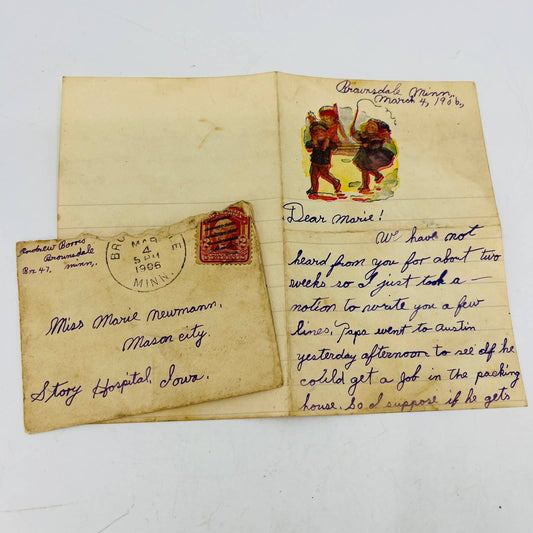 Brownsdale Minn,
March 4, 1906,
Dear Marie!
We have not
heard from you for about two
weeks so I just took a -
notion to write you a few
lines. Papa went to Austin
yesterday afternoon to see if he
could get a Job in the packing
house. So I suppose if he gets
Andrew Borris
Brownsdale
Bx 47. Minn,.
MAR
4
5 PM
1906
MINN.
Miss Marie Newmann.
Mason City.
Story Hospital, Iowa.